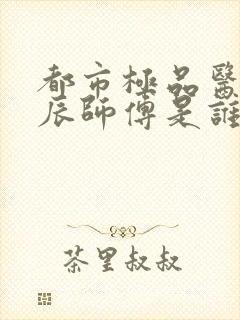 都市極品醫
辰師傅是誰
茶里叔叔